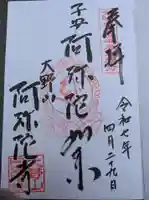 奉拝
令和七年
四月二十九日
子安阿弥陀如来
大野山
阿弥陀寺